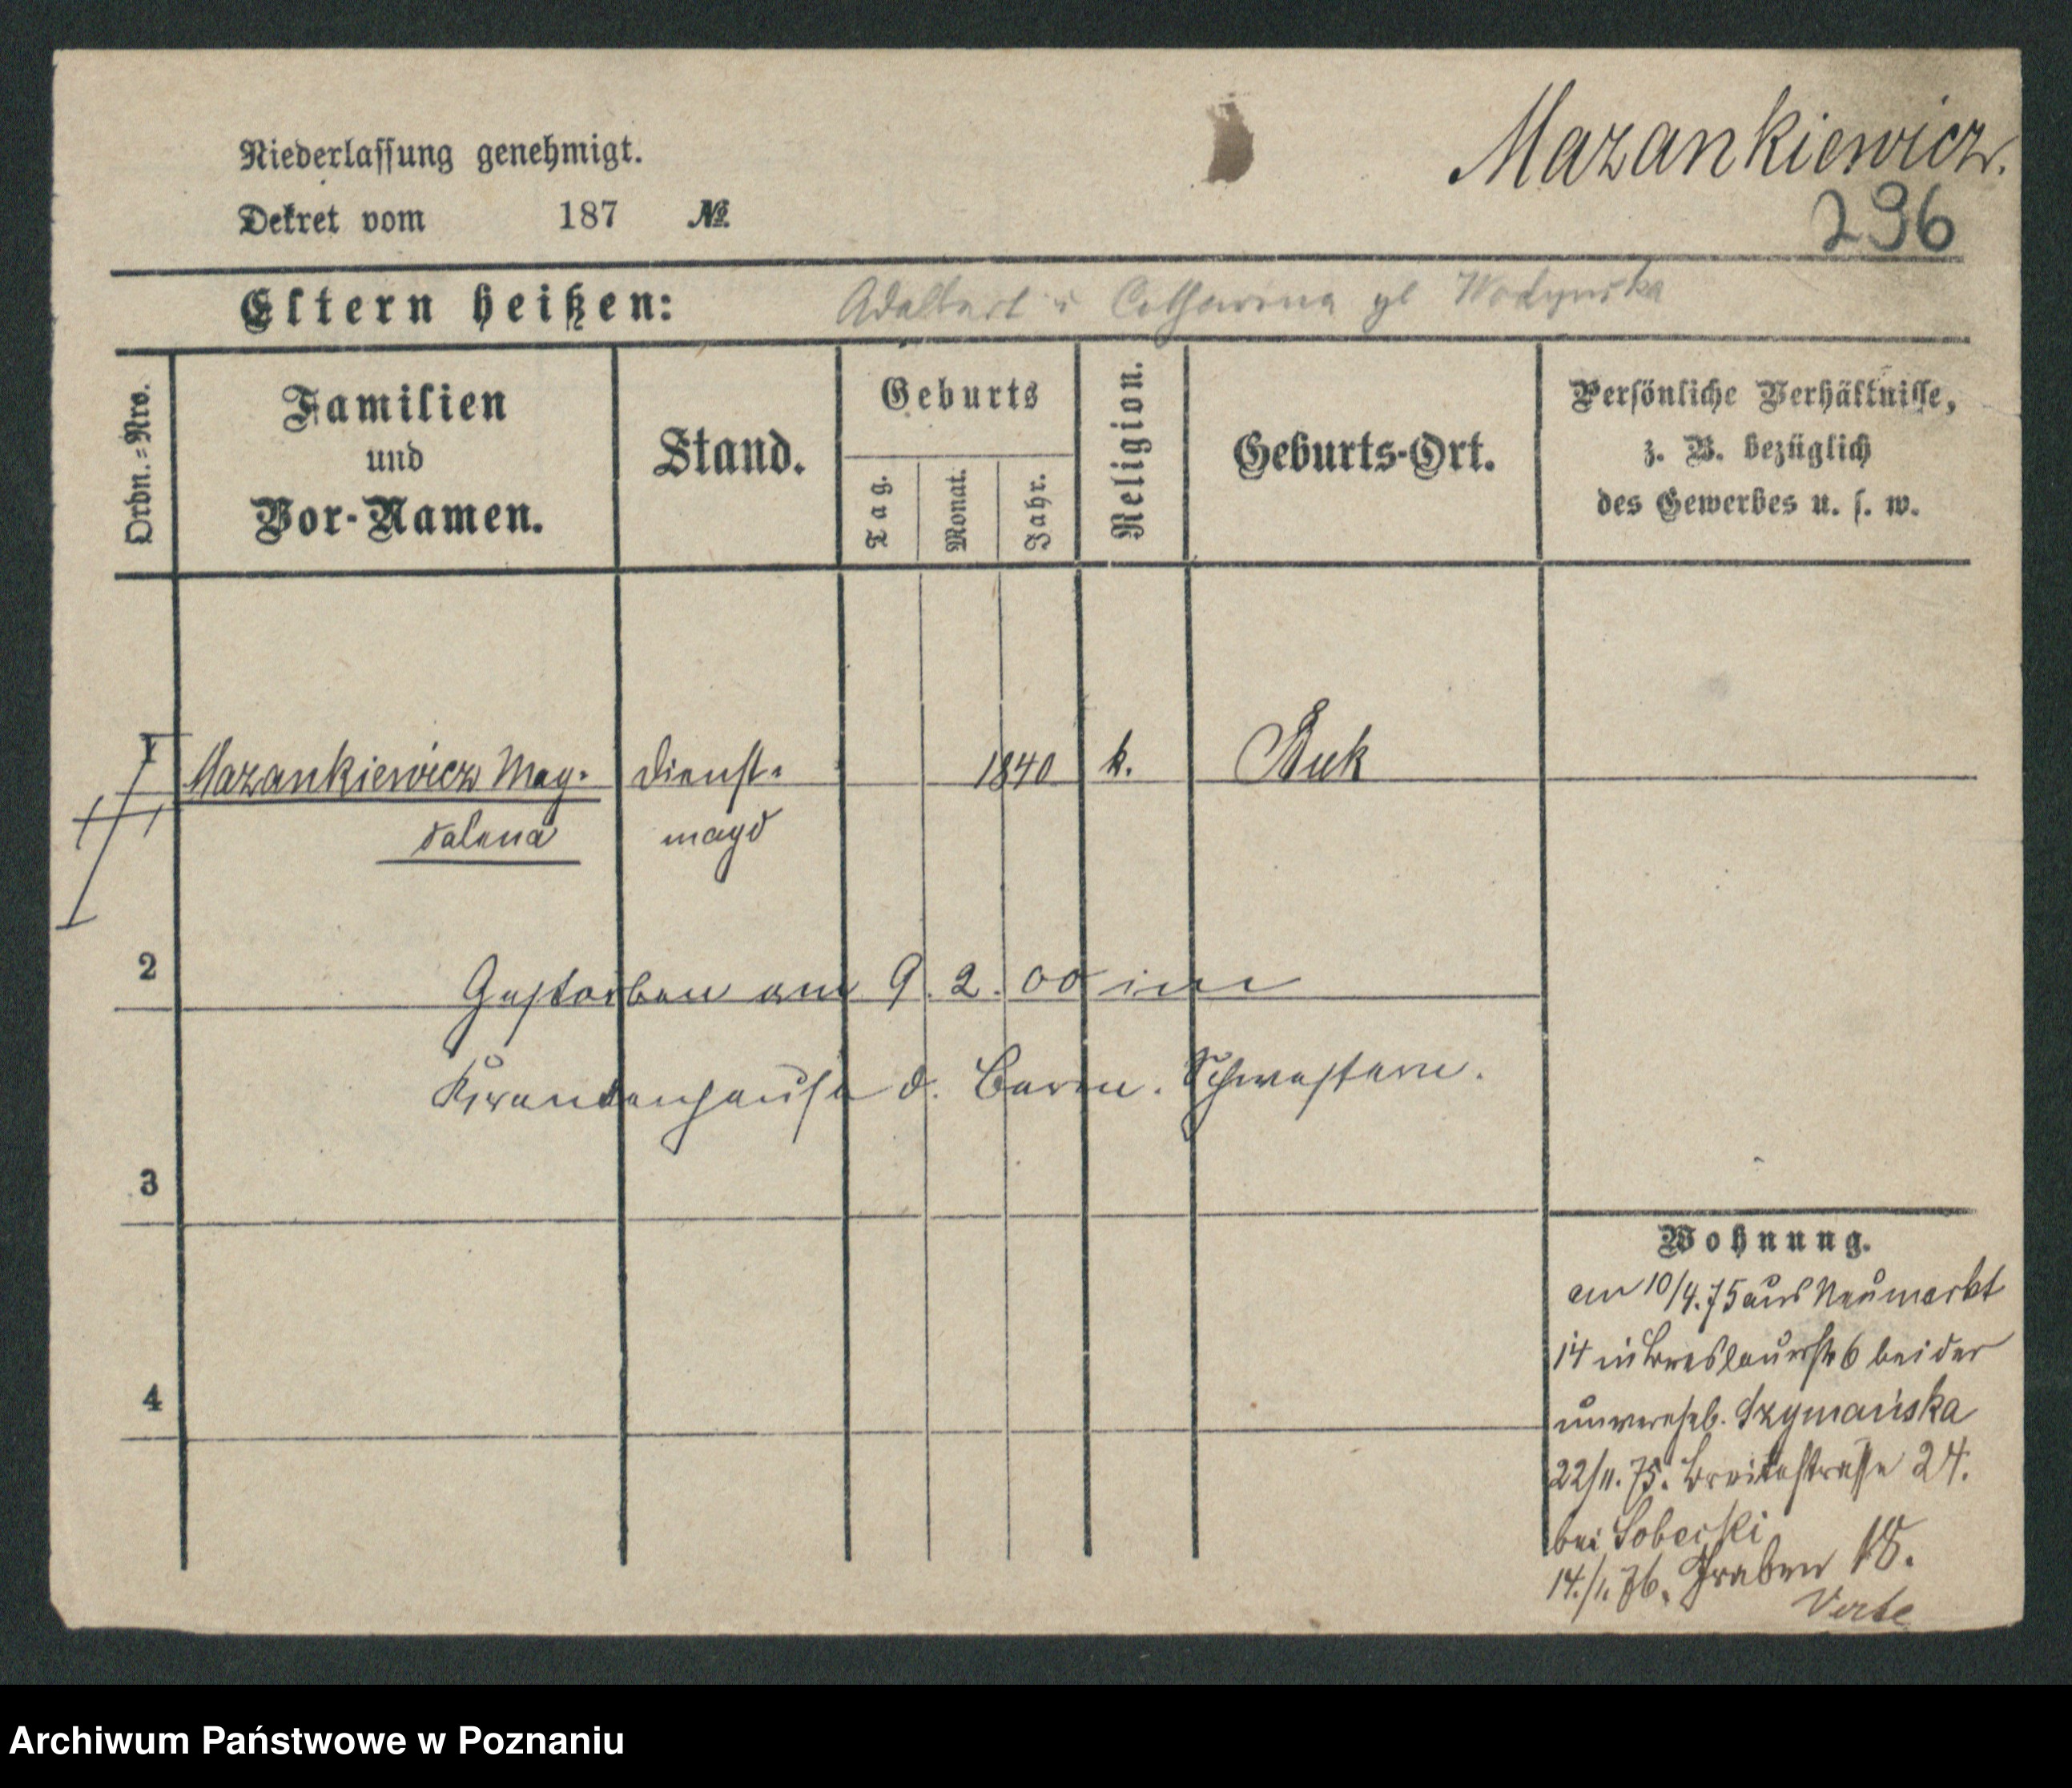 Mazankiewicz.
Niederlassung genehmigt.
Dekret vom 187 №
296
Eltern heißen: Adalbert u Catharina gb Wodynska
Ordn.=Nro.
Familien und Vor-Namen.
Stand.
Geburts
Tag.
Monat.
Jahr.
Religion.
Geburts-Ort.
Persönliche Verhältnisse,
z. B. bezüglich
des Gewerbes u. s. w.
1 Mazankiewicz Mag- Dienst- 1840 k. Buk
dalena magd
2
Gestorben am 9. 2. 00 im
Krankenhause d. Barm. Schwestern.
3
4
Wohnung.
am 10/4.75 aus Neumarkt
14 in Breslauerstr 6 bei der
unverehel. Szymańska
22/11.75. Breitestrasse 24.
bei Sobecki
14./1.76. Graben 18.
Verte
Archiwum Państwowe w Poznaniu